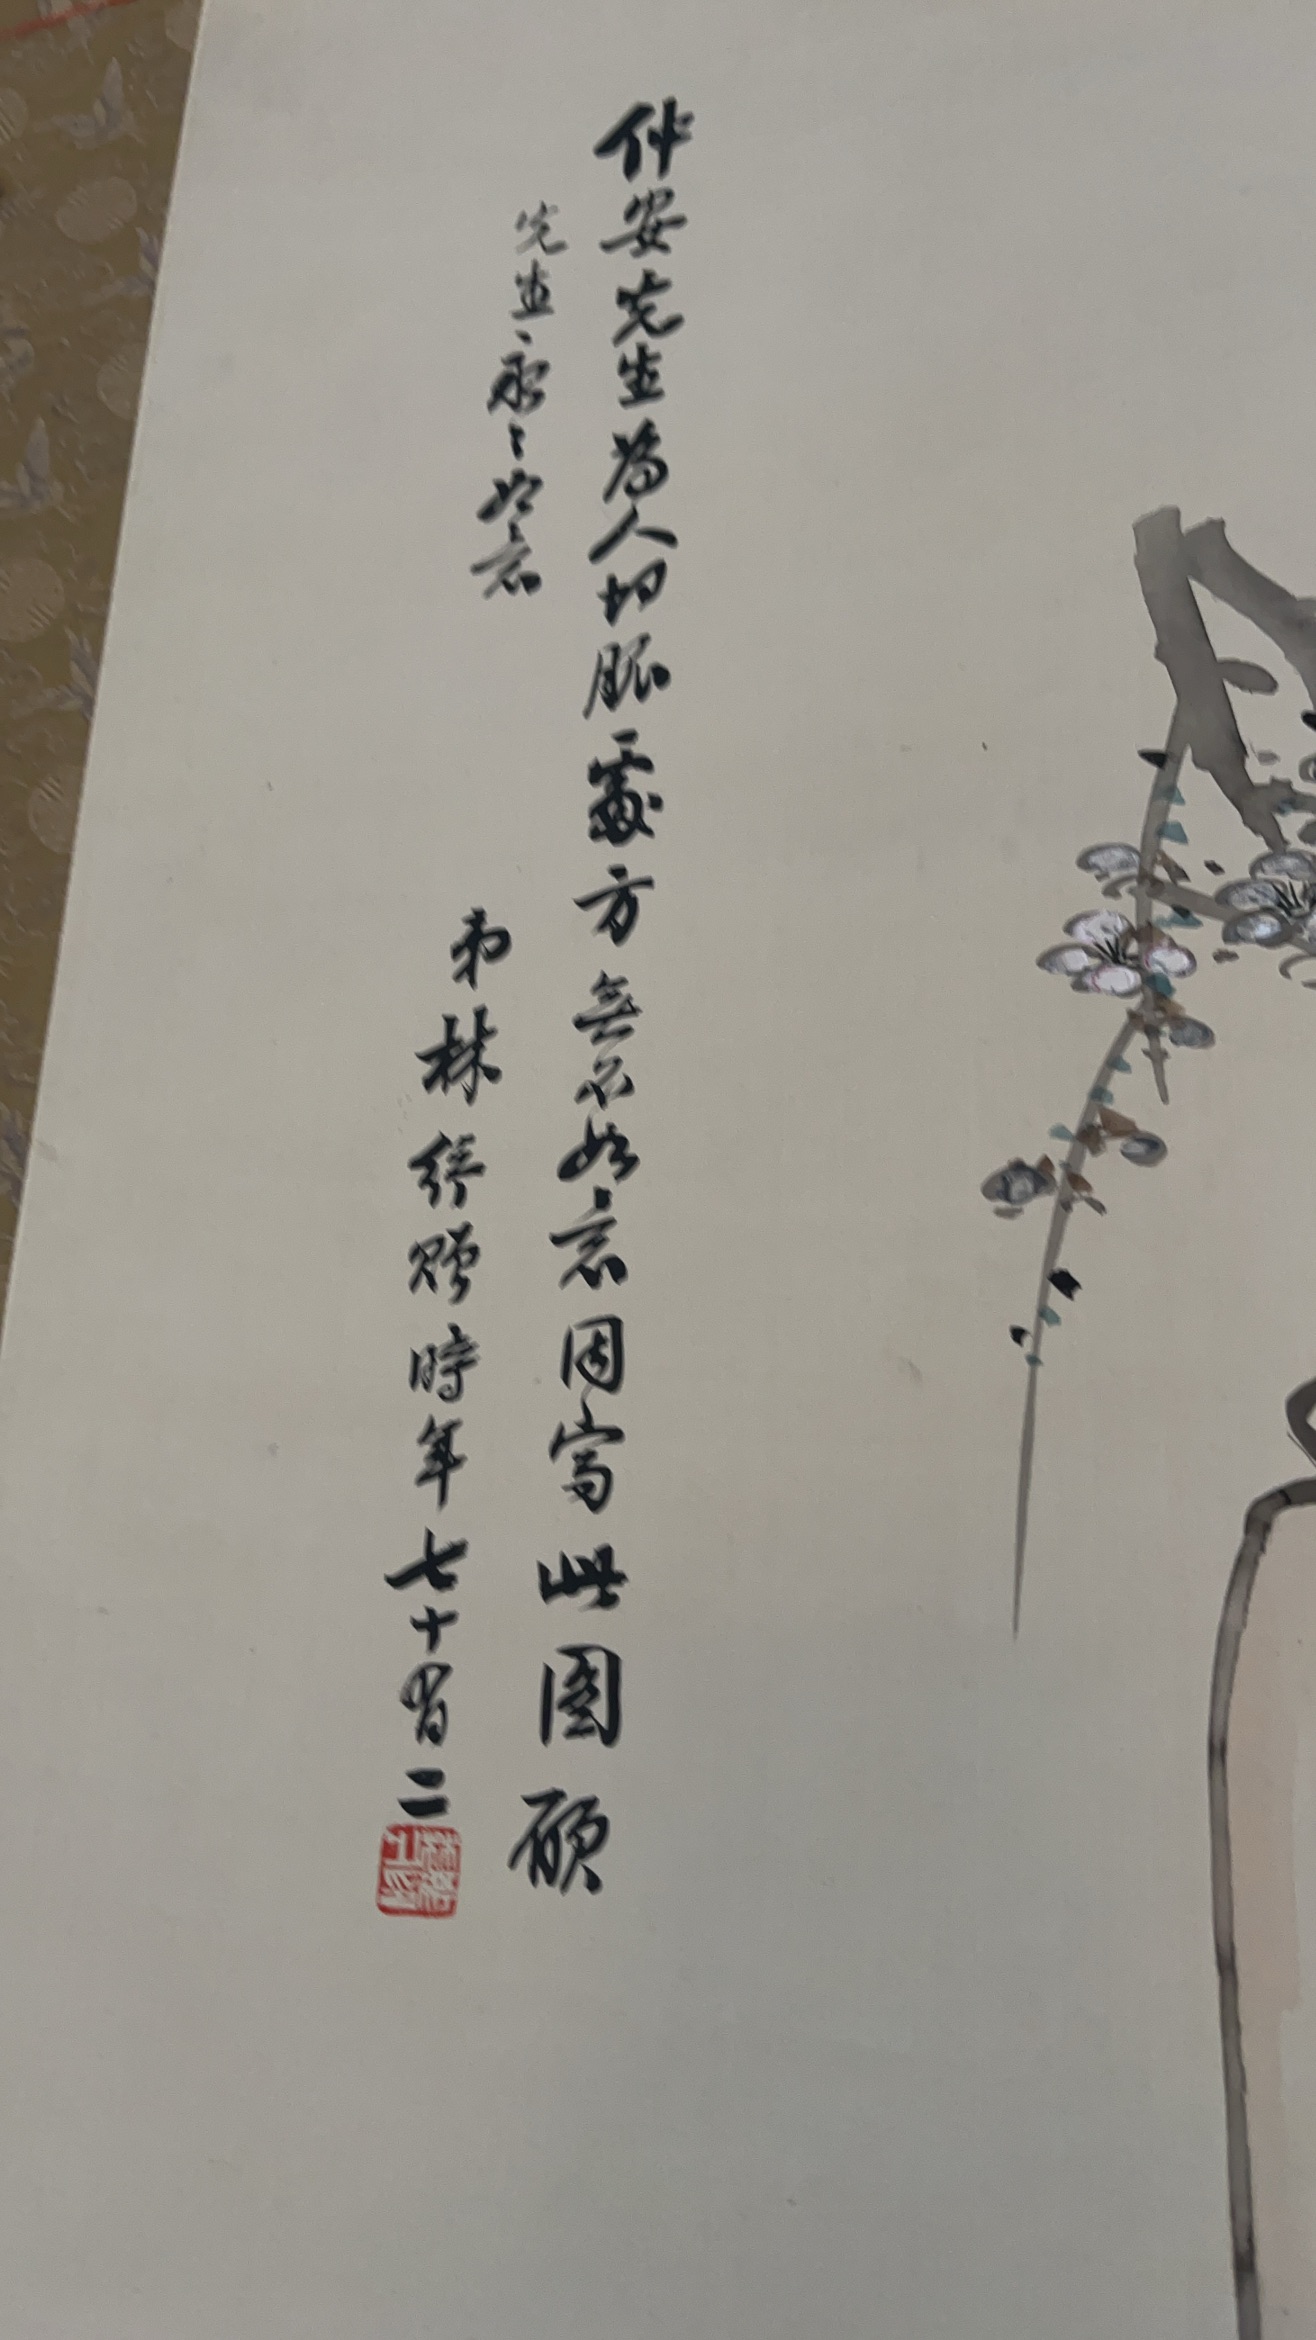 仲安先生為人切脈處方無不如意因寫此圖願
先生永〻如意
弟林紓贈時年七十有二